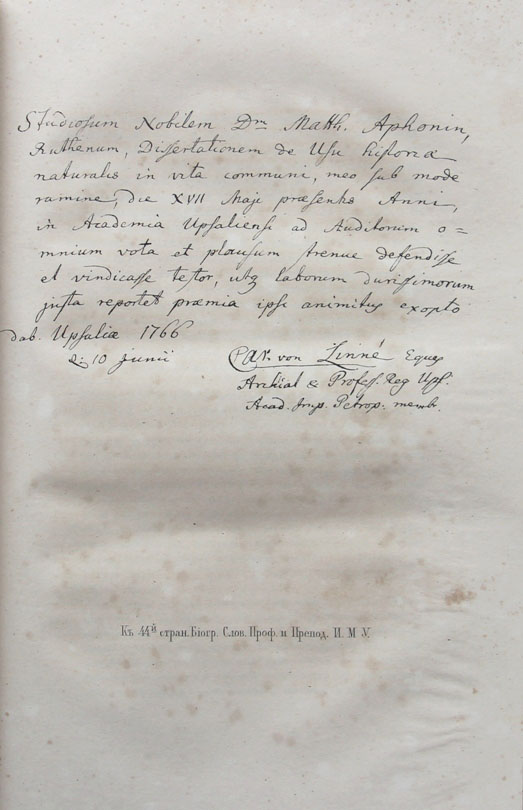 Studiosum Nobilem Dm Matth. Aphonin,
Ruthenum, Dissertationem de Usu historiæ
naturalis in vita communi, meo sub mode
ramine, die XVII Maji præsentis Anni,
in Academia Upsaliensi ad Auditorum o=
mnium vota et plausum strenue defendisse
et vindicasse testor, utq laborum durissimorum
justa reportet præmia ipsi animitus exopto
dab. Upsaliæ 1766
d: 10 Junii Car. von Linné Eques
Archiat & Profess. Reg Ups.
Acad. Imp. Petrop. memb.
Къ 44й стран. Біогр. Слов. Проф. и Препод. И. М У.